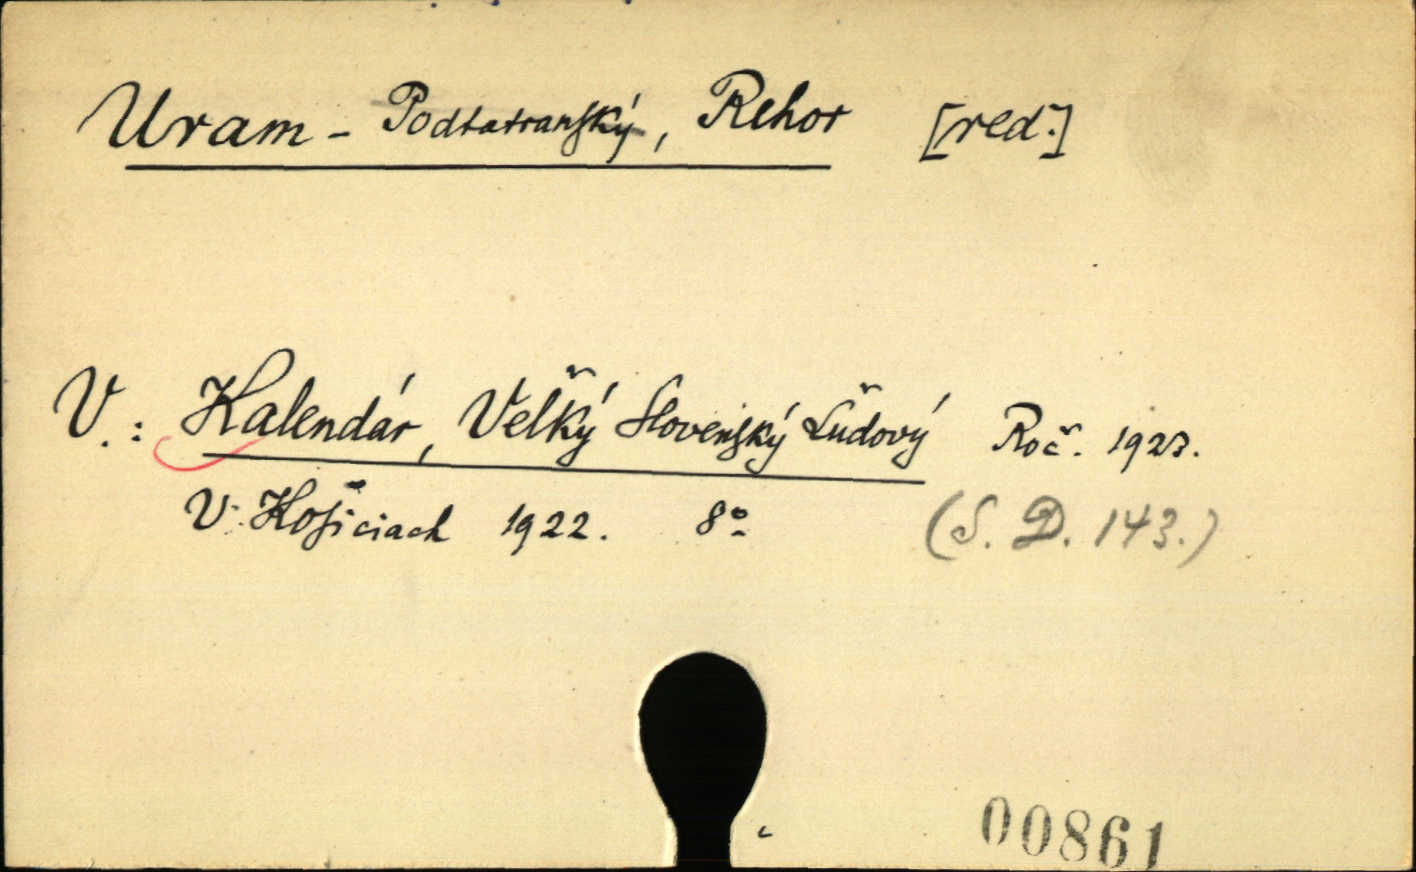 Uram - Podtatranský, Rehor [red.]
V.: Kalendár, Veľký Slovenský Ľudový Roč. 1923.
V Košiciach 1922. 8°
(S. D. 143.)
00861